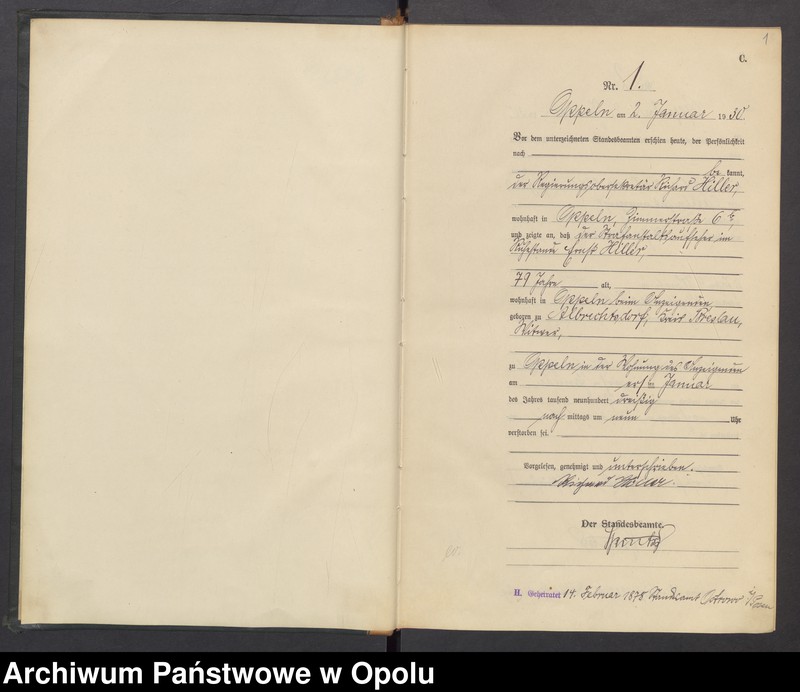 1
C.
Nr. 1.
Oppeln am 2. Januar 1930
Vor dem unterzeichneten Standesbeamten erschien heute, der Persönlichkeit
nach
be kannt,
der Regierungsobersekretär Richard Hiller,
wohnhaft in Oppeln, Zimmerstraße 6
und zeigte an, daß der Strafanstaltsaufseher im
Ruhestand Ernst Hiller,
79 Jahre alt,
wohnhaft in Oppeln beim Anzeigenden,
geboren zu Albrechtsdorf, Kreis Breslau,
Witwer,
zu Oppeln, in der Wohnung des Anzeigenden
am ersten Januar
des Jahres tausend neunhundert dreißig
nach mittags um neun Uhr
verstorben sei.
Vorgelesen, genehmigt und unterschrieben.
Richard Hiller.
Der Standesbeamte.
H. Geheiratet 14. Februar 1878 Standesamt Ostrowo Posen
Archiwum Państwowe w Opolu